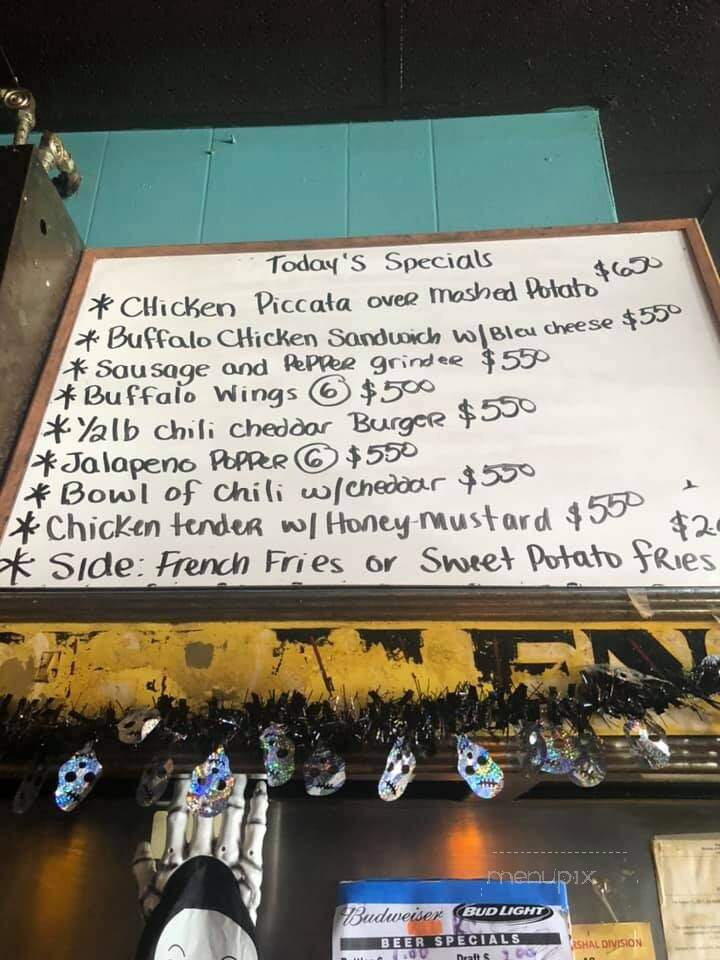 Today's Specials
* Chicken Piccata over mashed Potato $650
* Buffalo Chicken Sandwich w/Bleu cheese $550
* Sausage and Pepper grinder $550
* Buffalo Wings 6 $500
* 1/2 lb chili cheddar Burger $550
* Jalapeno Popper 6 $550
* Bowl of chili w/cheddar $550
* Chicken tender w/ Honey-mustard $550
* Side: French Fries or Sweet Potato fries
menupix
Budweiser BUD LIGHT
BEER SPECIALS
Draft $
RSHAL DIVISION